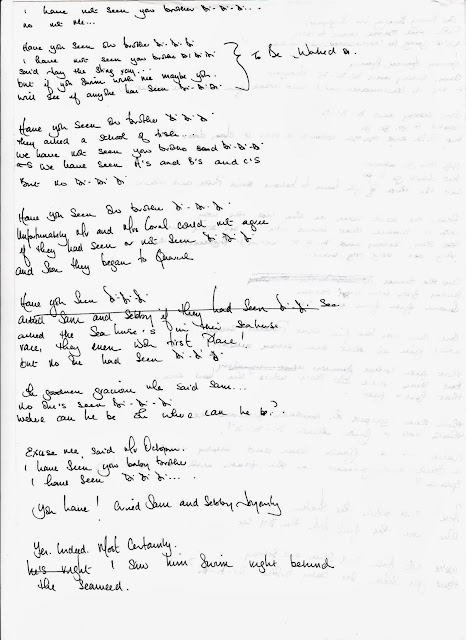 I have not seen you brother Di-Di-Di....
no not me...
Have you seen our brother Di-Di-Di
I have not seen you brother Di Di Di
said Ray the sting ray...
but if you swim with me maybe you
will see if anyone has seen Di-Di-Di
To Be Worked On.
Have you seen our brother Di-Di-Di
They asked a school of fish...
We have not seen you brother said Di-Di-Di
we have seen A's and B's and C's
But no Di-Di-Di
Have you seen our brother Di-Di-Di
Unfortunately Mr and Mrs Coral could not agree
if they had seen or not seen Di-Di-Di
and soon they began to Quarrel
Have you seen Di-Di-Di
asked Sam and Sebby if they had seen Di-Di Sea
asked the Sea horse's in their Seahorse
race, they even won first Place!
but no one had seen Di-Di-Di
Oh goodness gracious me said Sam...
No one's seen Di-Di-Di
where can he be Oh where can he be?
Excuse me, said Mr Octopus.
I have seen you baby brother
I have seen Di Di Di....
You have! Cried Sam and Sebby Joyently
Yes. Indeed. Most Certainly.
he's right I saw him swim right behind
the Seaweed.